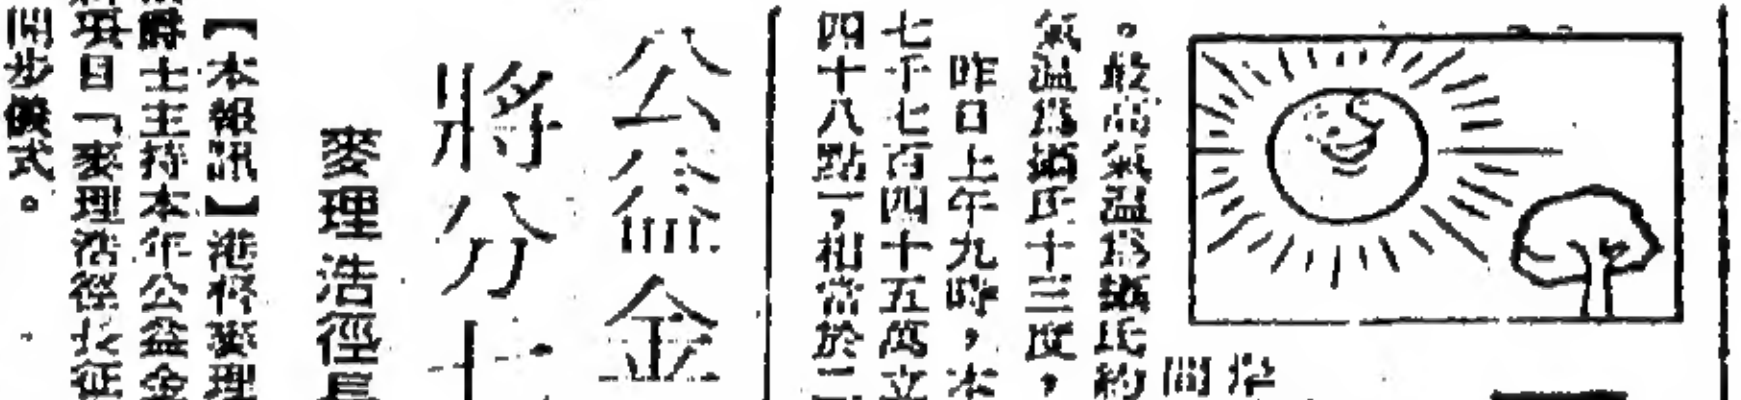 間
。最高氣溫爲攝氏約
氣溫爲攝氏十三度，
昨日上午九時，本
七千七百四十五萬立
四十八點一，相當於二
公益金
將分七
麥理浩徑長
【本報訊】港督麥理
爵士主持本年公益金
項目「麥理浩徑長征
開步儀式。